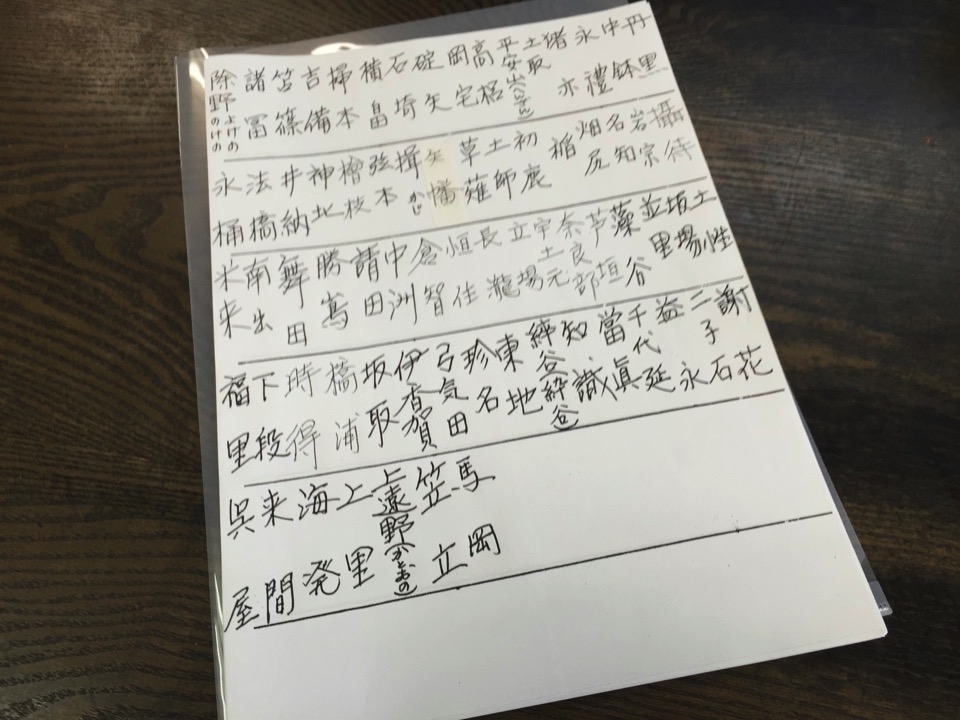 丹里
中鉢
永禮
猪亦
土取
平安山(へんざん)
高椙
岡宅
碇矢
石埼
畠
掃本
吉備
笘篠
諸冨
除野よけの のけの
攝待
岩宗
名知
畑尻
初鹿
土師
草薙
矢幡
揖かじ
弦本
檜枝
神北
井納
法橋
永桶
土性
場
並里
藻谷
芦垣
奈良部
宇土元
立場
長瀧
恒佳
倉智
中洲
請田
勝嶌
舞田
南出
米来
謝花
二子石
益永
千代延
當眞
知識
東地
珍名
弓気田
伊香賀
坂取
橋浦
時得
下段
福里
馬岡
笠立
上遠野(かどおの)
上里
海発
来間
呉屋